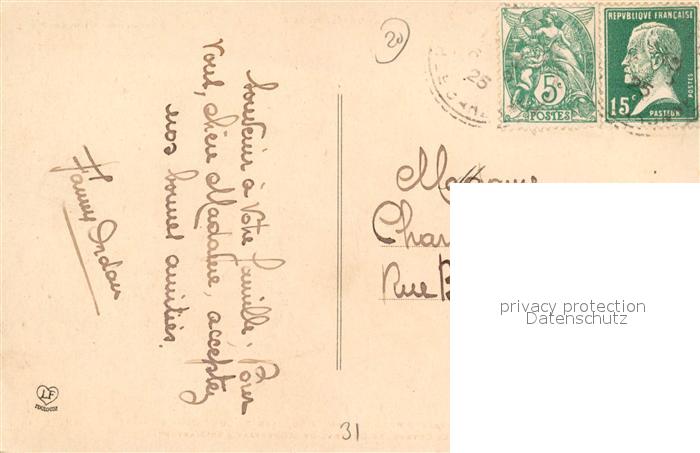 Souvenir à votre famille. Pour
vous, chère Madame, acceptez
nos bonnes amitiés.
Fanny
LF
TOULOUSE
20
31
25
5c
POSTES
REPUBLIQUE FRANÇAISE
POSTES
15c
PASTEUR
25
Madame
Char
Rue B
privacy protection
Datenschutz